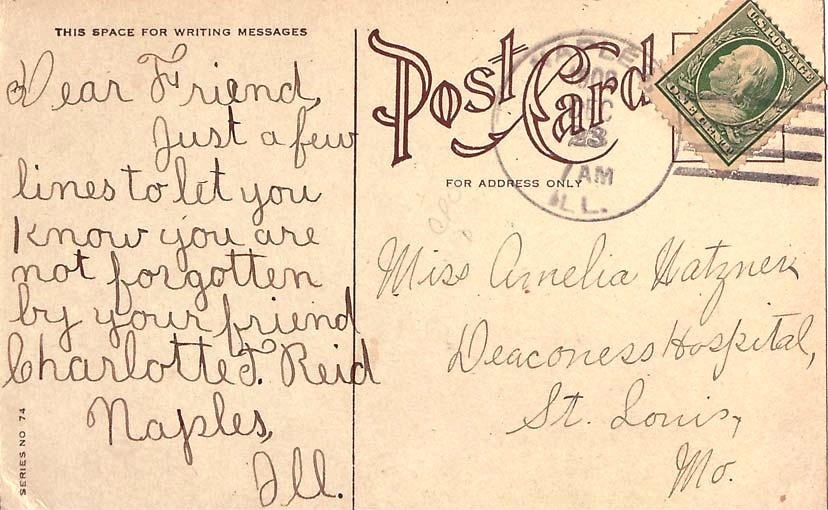 THIS SPACE FOR WRITING MESSAGES
Dear Friend,
Just a few
lines to let you
know you are
not forgotten
by your friend
Charlotte J. Reid
Naples,
Ill.
SERIES NO 74
Post Card
FOR ADDRESS ONLY
U.S. POSTAGE
ONE CENT
23
7 AM
ILL.
Miss Amelia Hatzner
Deaconess Hospital,
St. Louis,
Mo.